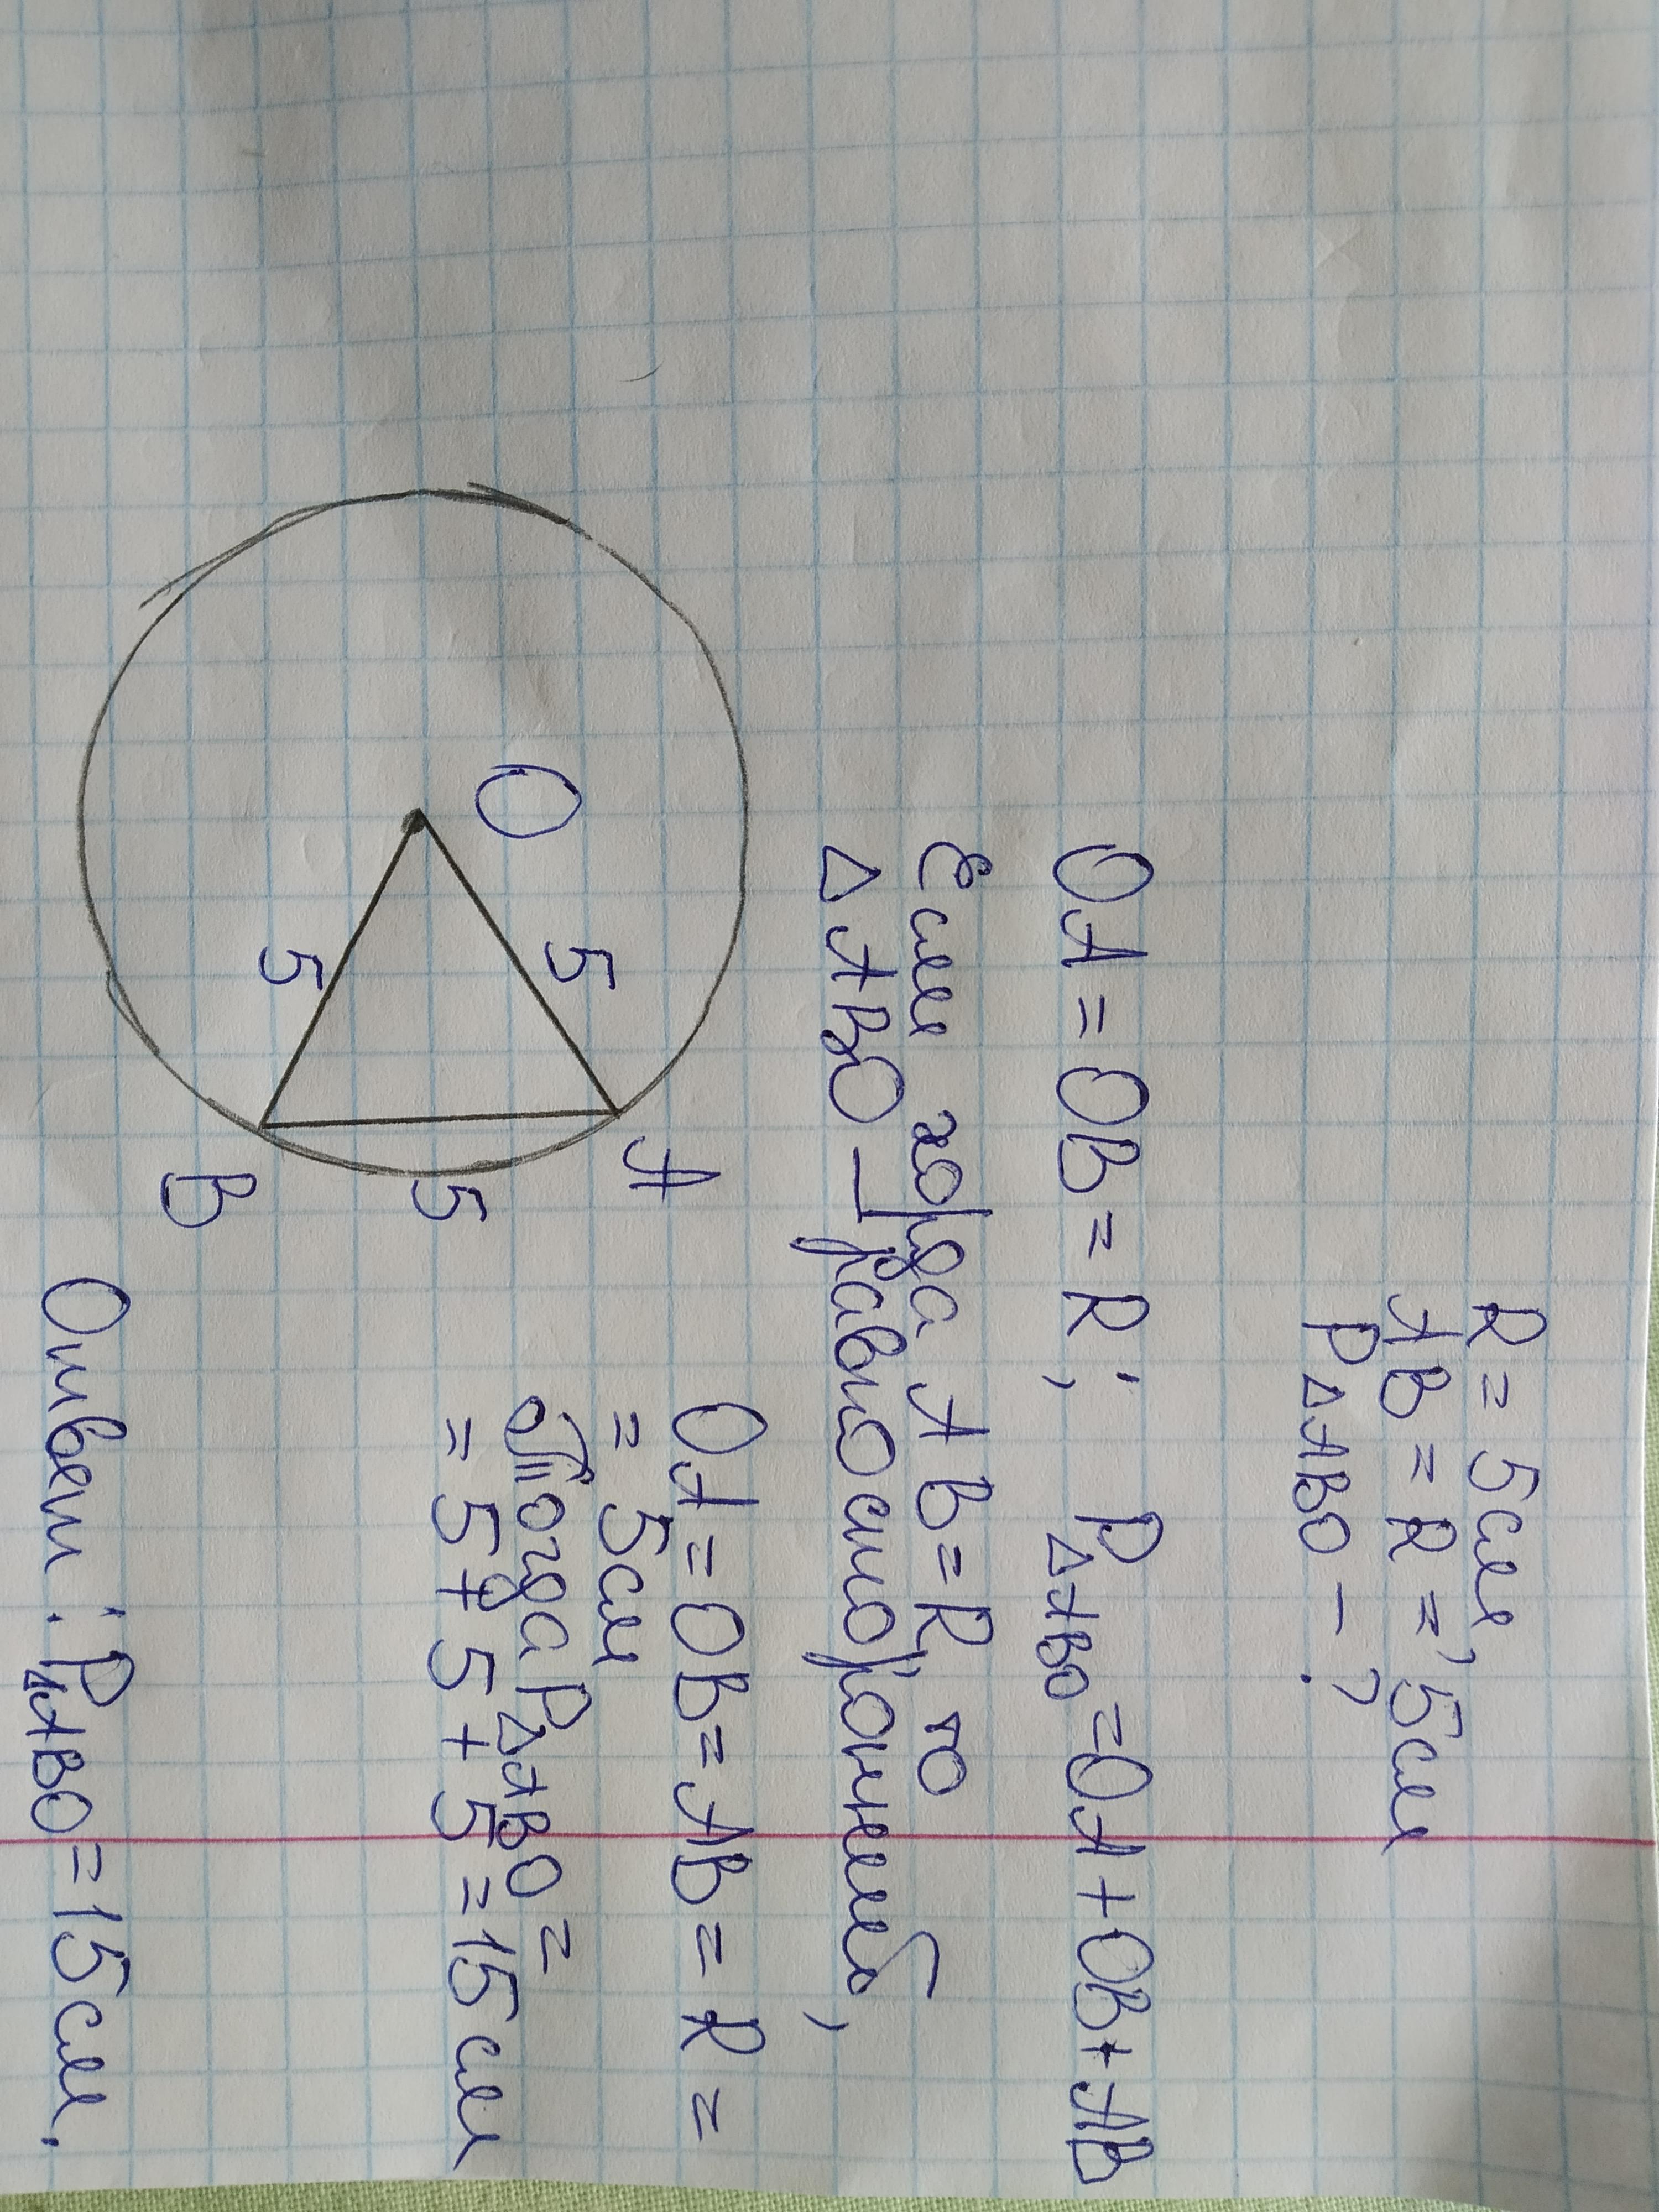 R = 5см,
AB = R = 5см
P△ABO - ?
OA = OB = R; P△ABO = OA + OB + AB
Если хорда AB = R, то
△ABO - равносторонний,
OA = OB = AB = R =
= 5см
Тогда P△ABO =
= 5 + 5 + 5 = 15 см
Ответ: P△ABO = 15 см.
O
5
5
A
5
B